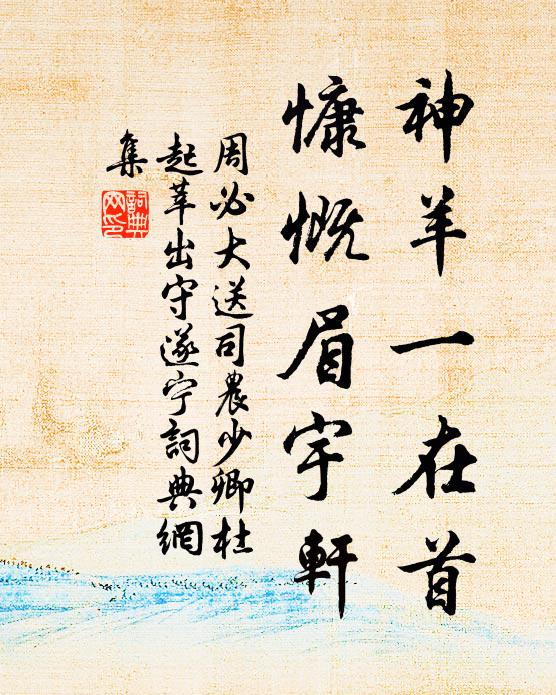 神羊一在首
慷慨眉宇軒
周必大送司農少卿杜
起莘出守遂宁詞典網
集
詞典
网印